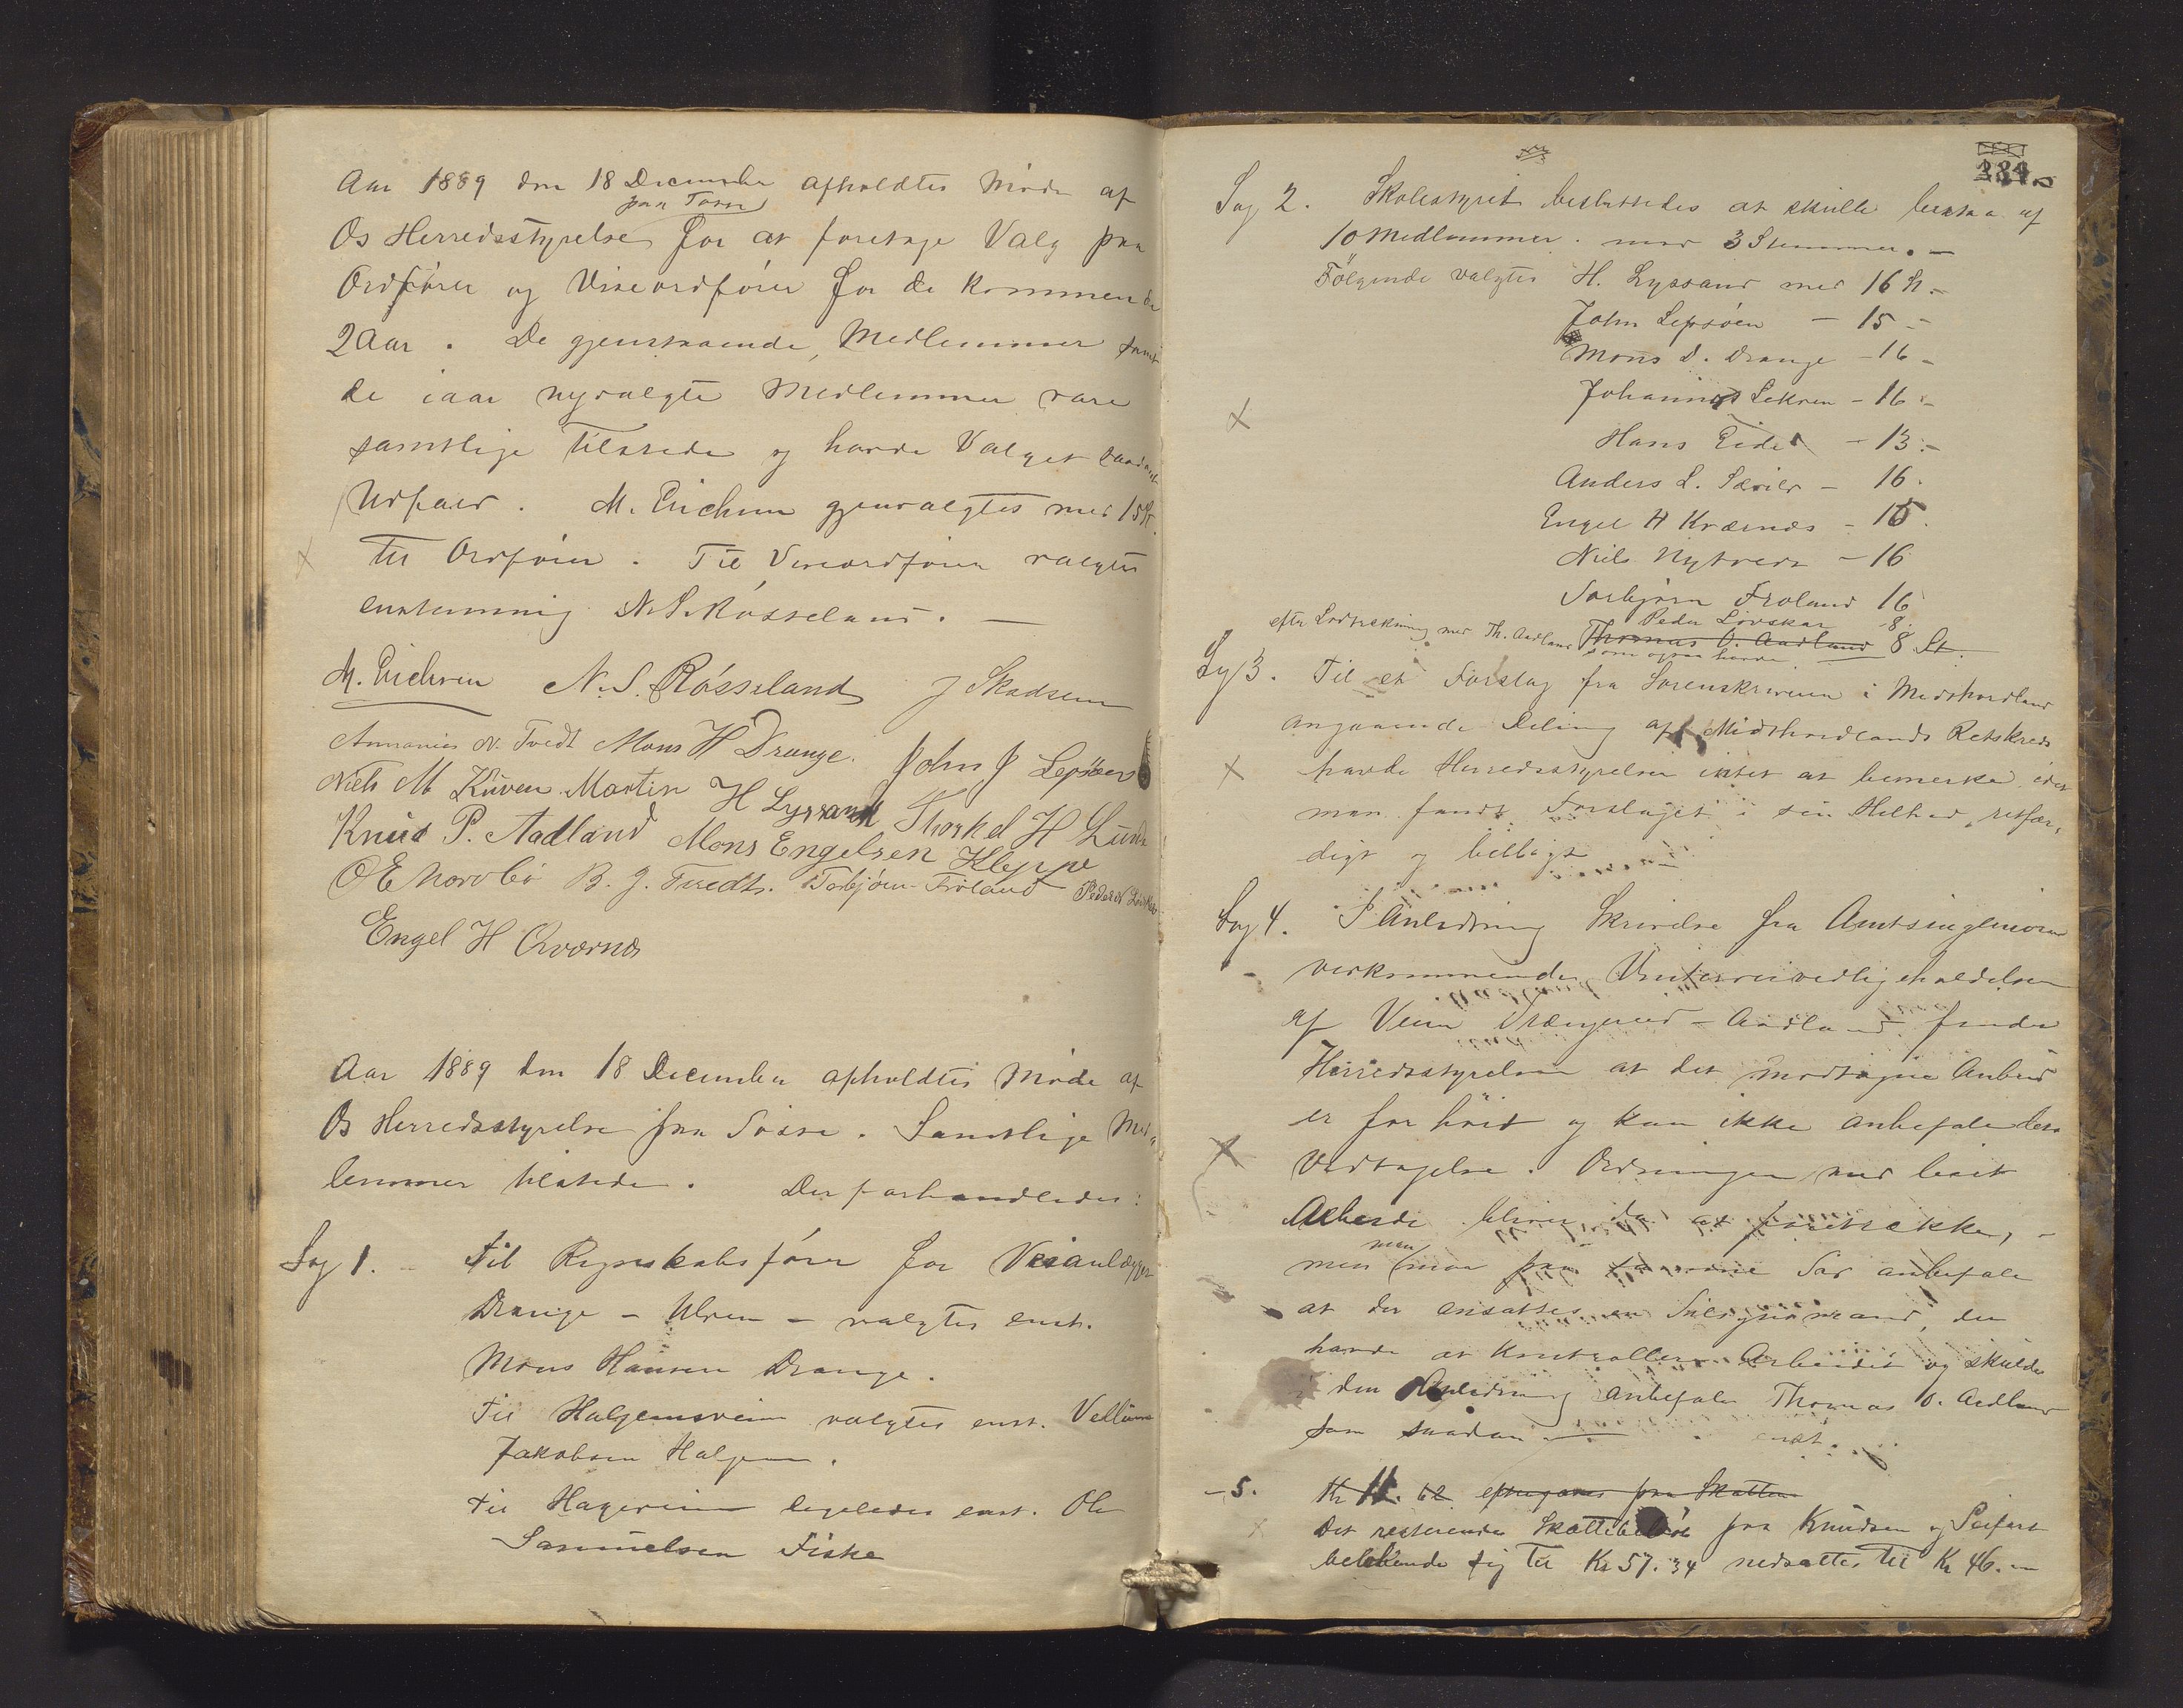 Aar 1889 den 18 December afholdtes Møde af
paa Søre
Os Herredsstyrelse for at foretage Valg paa
Ordfører og Viseordfører for de kommende
2 Aar. De gjenstaaende Medlemmer samt
de iaar nyvalgte Medlemmer vare
samtlige tilstede og havde Valget saadant
Udfald. M. Erichsen gjenvalgtes med 15 St.
til Ordfører. Til Viseordfører valgtes
enstemmig N. S. Røsseland. —
M. Erichsen N. S. Røsseland J Skadsem
Annanias N. Tvedt Mons H Drange. John J Lepsøen
Niels M Kuven Martin H Lyssand Thorkel H Lunde
Knud P. Aadland Mons Engelsen Kleppe
O E Morobø B. J. Tvedt. Torbjørn Frøland Peder N Løvskar
Engel H Qværnæs
Aar 1889 den 18 December afholdtes Møde af
Os Herredsstyrelse paa Søre. Samtlige Med-
lemmer tilstede. Der forhandledes:
Sag 1. - Til Regnskabsfører for Veianlægget
Drange - Ulven - valgtes enst.
Mons Hansen Drange.
Til Halgemsveien valgtes enst. Vellum
Jakobsen Haljem.
Til Hageveien ligeledes enst. Ole
Samuelsen Fiske
284.
Sag 2. Skolestyret besluttedes at skulle bestaa af
10 Medlemmer. med 3 Stemmer. —
Følgende valgtes H. Lyssand med 16 St. -
John Lepsøen - 15 -
Mons D. Drange - 16 -
Johannes Lekven - 16 -
Hans Eide - 13 -
Anders L. Sævild - 16.
Engel H Kværnæs - 15.
Niels Nytveit - 16
Torbjørn Frøland 16
Peder Løvskar 8.
efter Lodtrækning med Th. Aadland Thomas O. Aadland 8 St.
som ogsaa havde.
Sag 3. Til et Forslag fra Sorenskriveren i Midthordland
angaaende Deling af Midthordlands Retskreds
havde Herredsstyrelsen intet at bemerke, idet
man fandt Forslaget i sin Helhed retfær-
digt og billigt
Sag 4. I Anledning Skrivelse fra Amtsingeniøren
vedkommende Vinterveivedligeholdelsen
af Veien Drangevid - Aadland finder
Herredsstyrelsen at det modtagne Anbud
er for høit og kan ikke anbefale dets
Vedtagelse. Ordningen med leiet
Arbeide bliver da at foretrække, -
men
men maa paa samme Tid anbefale
at der ansættes en Tilsynsmand, der
havde at kontrollere Arbeidet og skulde
i den Anledning anbefale Thomas O. Aadland
som saadan — enst.
- 5. Kr 11. 62 eftergaves fra Skatten
Det resterende Skattebeløb fra Knudsen og Seifert
beløbende sig til Kr 57.34 nedsattes til Kr 46. -